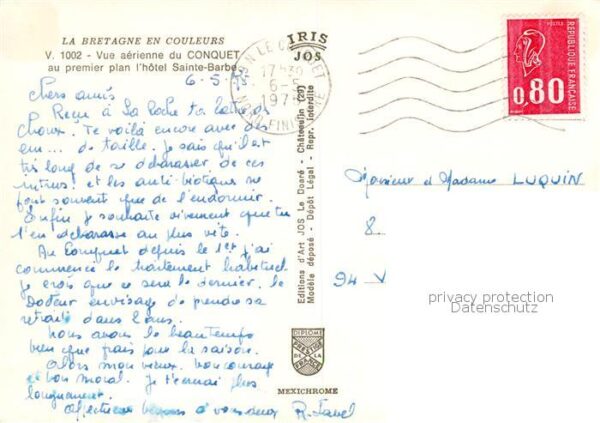 LA BRETAGNE EN COULEURS
V. 1002 - Vue aérienne du CONQUET
au premier plan l'hôtel Sainte-Barbe
IRIS
JOS
6-5-75
Chers amis
Reçu à La Roche ta lettre de
Choux. Te voilà encore avec des
em... de taille. Je sais qu'il est
très long de se débarasser de ces
et les antibiotiques ne
font souvent que de l'endormir.
Enfin je souhaite vivement que tu
t'en débarasse au plus vite.
Au Conquet depuis le 1er j'ai
commencé le traitement habituel
je crois que ce sera le dernier. le
Docteur envisage de prendre sa
retraite dans 2 ans.
Nous avons le beau temps
bien que frais pour la saison.
Alors mon vieux, bon courage
et bon moral. Je t'ennuie plus
longuement.
à vous deux
Editions d'Art JOS Le Doaré - Châteaulin (29)
Modèle déposé - Dépôt Légal - Repr. interdite
DIPLOME
PRESTIGE
DE LA
FRANCE
MEXICHROME
17H30
6-5
POSTES
REPUBLIQUE FRANÇAISE
0,80
Monsieur et Madame LUQUIN
8
94
privacy protection
Datenschutz